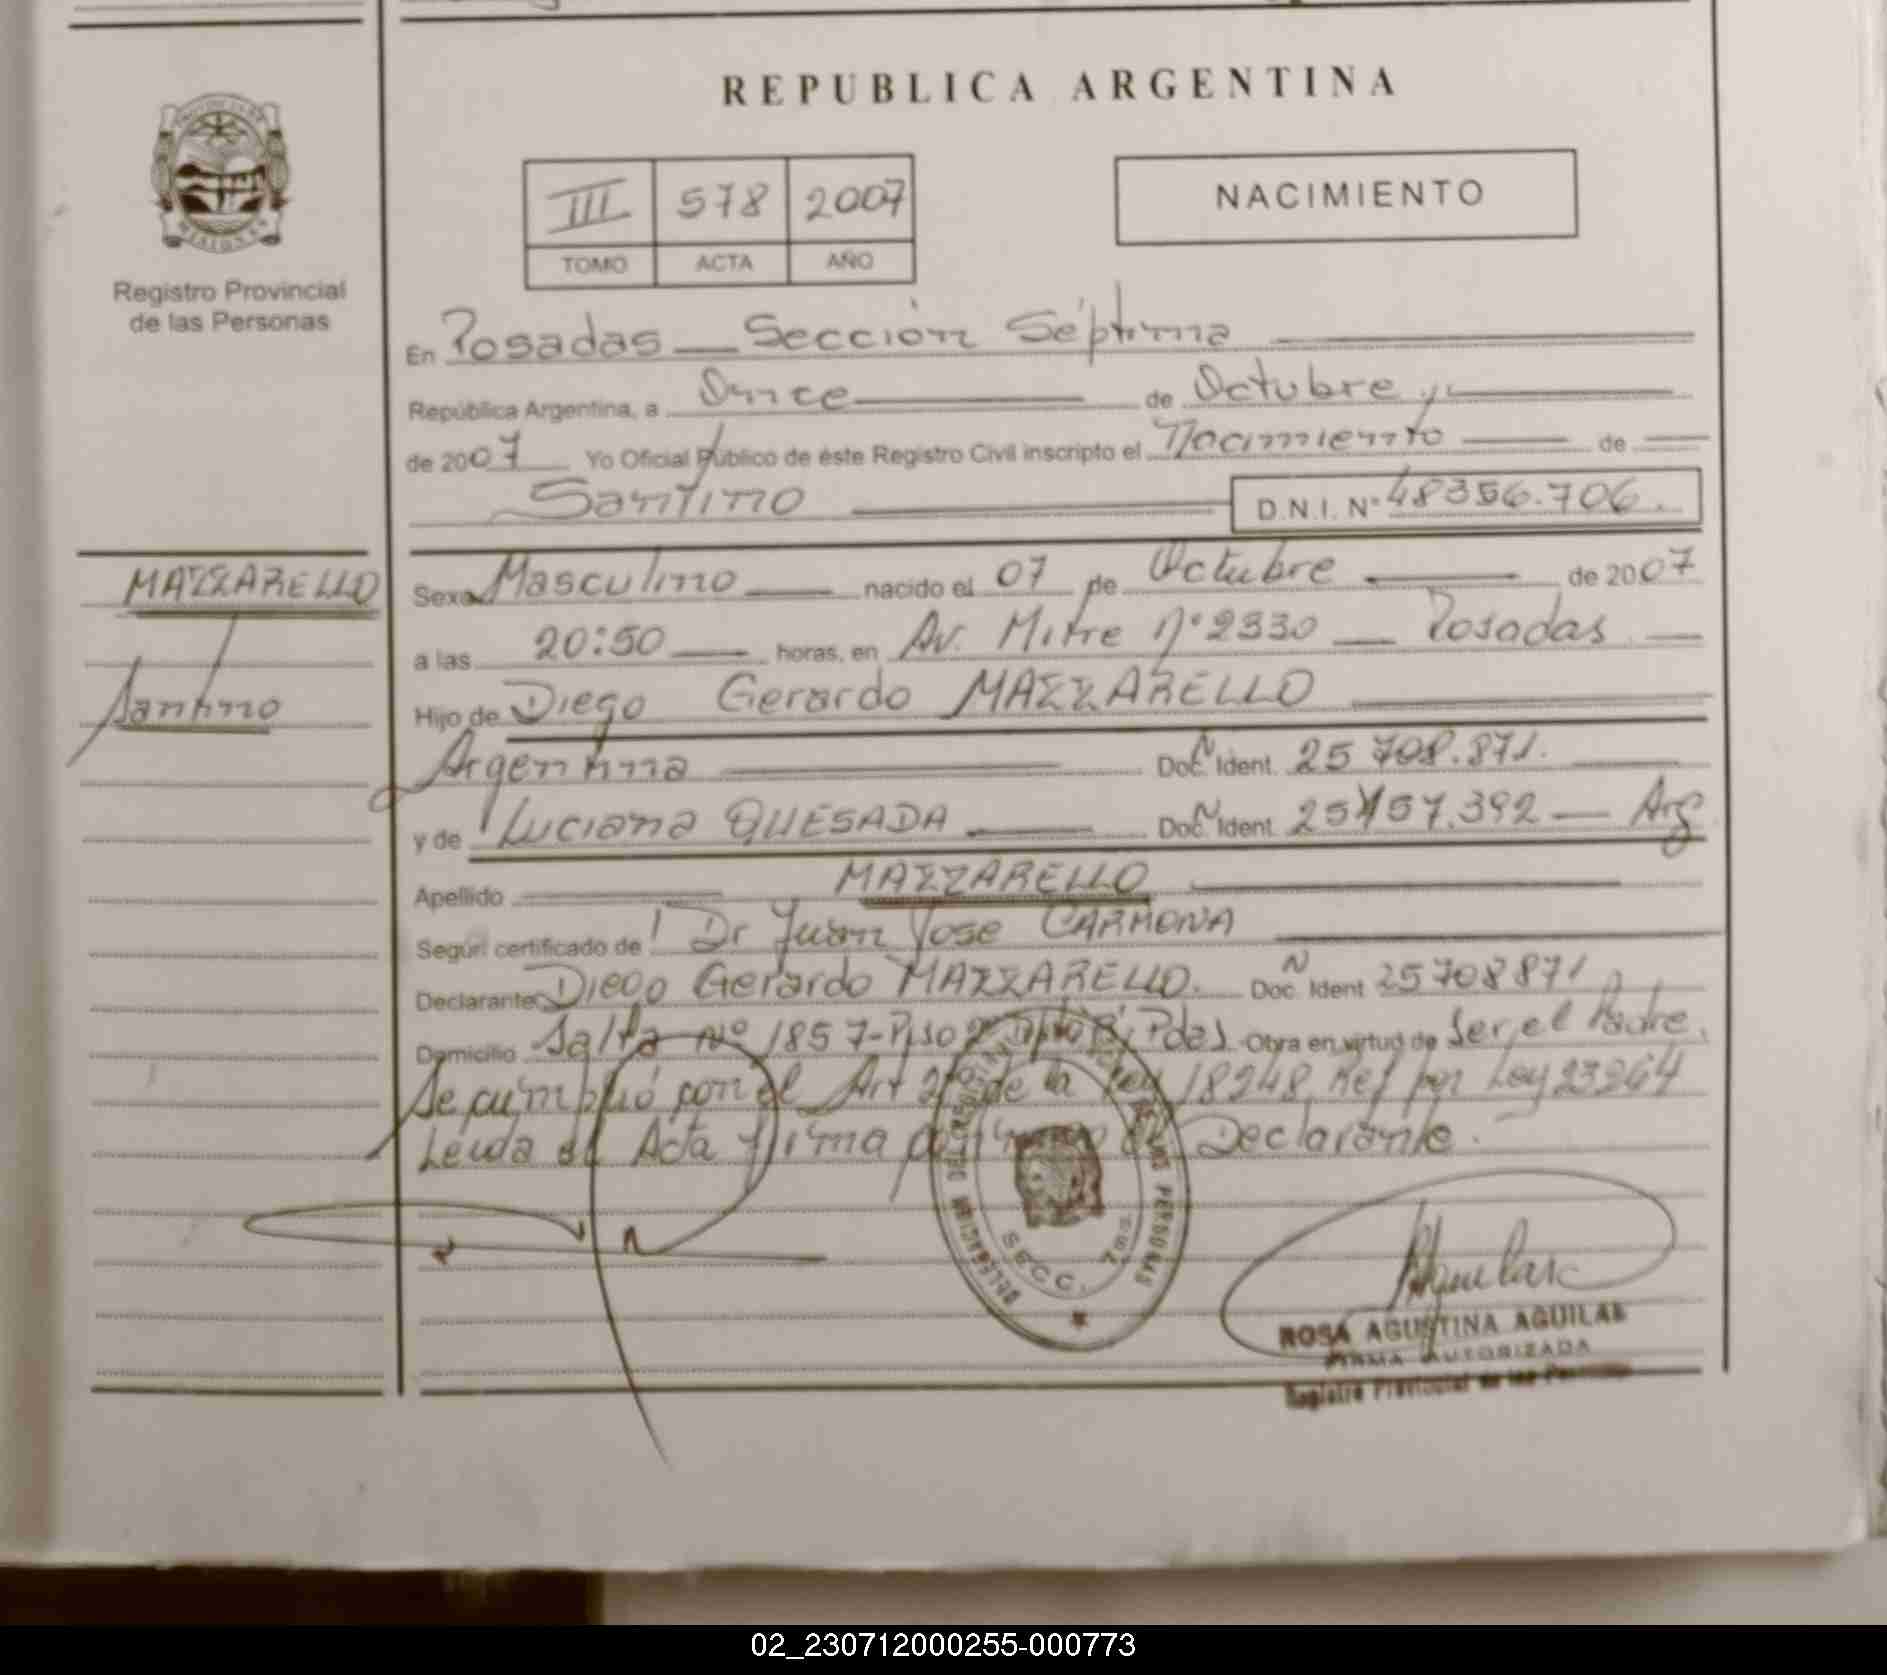 REPUBLICA ARGENTINA
III 578 2007
TOMO ACTA AÑO
NACIMIENTO
Registro Provincial
de las Personas
En Posadas — Sección Séptima
República Argentina, a Once de Octubre
de 2007 Yo Oficial Público de éste Registro Civil inscripto el Nacimiento de
Santino D.N.I. Nº 48356.706.
MAZZARELLO
Santino
Sexo Masculino nacido el 07 de Octubre de 2007
a las 20:50 horas, en Av. Mitre Nº 2330 — Posadas
Hijo de Diego Gerardo MAZZARELLO
Argentina Doc. N Ident. 25 708.871.
y de Luciana QUESADA Doc. N Ident. 25157.392 — Arg
Apellido MAZZARELLO
Según certificado de Dr Juan Jose CARMONA
Declarante Diego Gerardo MAZZARELLO. Doc. N Ident 25708871
Domicilio Salta Nº 1857-Piso 2º Dpto B, Pdas Obra en virtud de Ser el Padre.
Se cumplió con el Art 2º de la Ley 18248, Ref por Ley 23264
Leida el Acta firma el Declarante.
SECC. 7ma.
ROSA AGUSTINA AGUILAR
FIRMA AUTORIZADA
Registro Provincial de las Personas
02_230712000255-000773